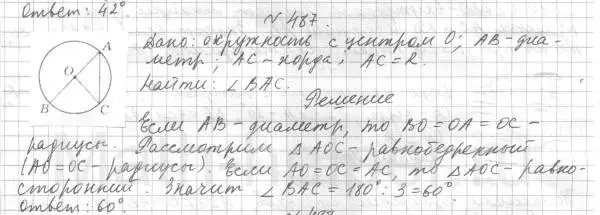 Ответ: 42°
№ 487.
A
O
B
C
Дано: окружность с центром O; AB - диа-
метр; AC - хорда; AC = R.
Найти: ∠BAC.
Решение
Если AB - диаметр, то BO = OA = OC -
радиусы. Рассмотрим △AOC - равнобедренный
(AO = OC - радиусы). Если AO = OC = AC, то △AOC - равно-
сторонний. Значит ∠BAC = 180° : 3 = 60°
Ответ: 60°.